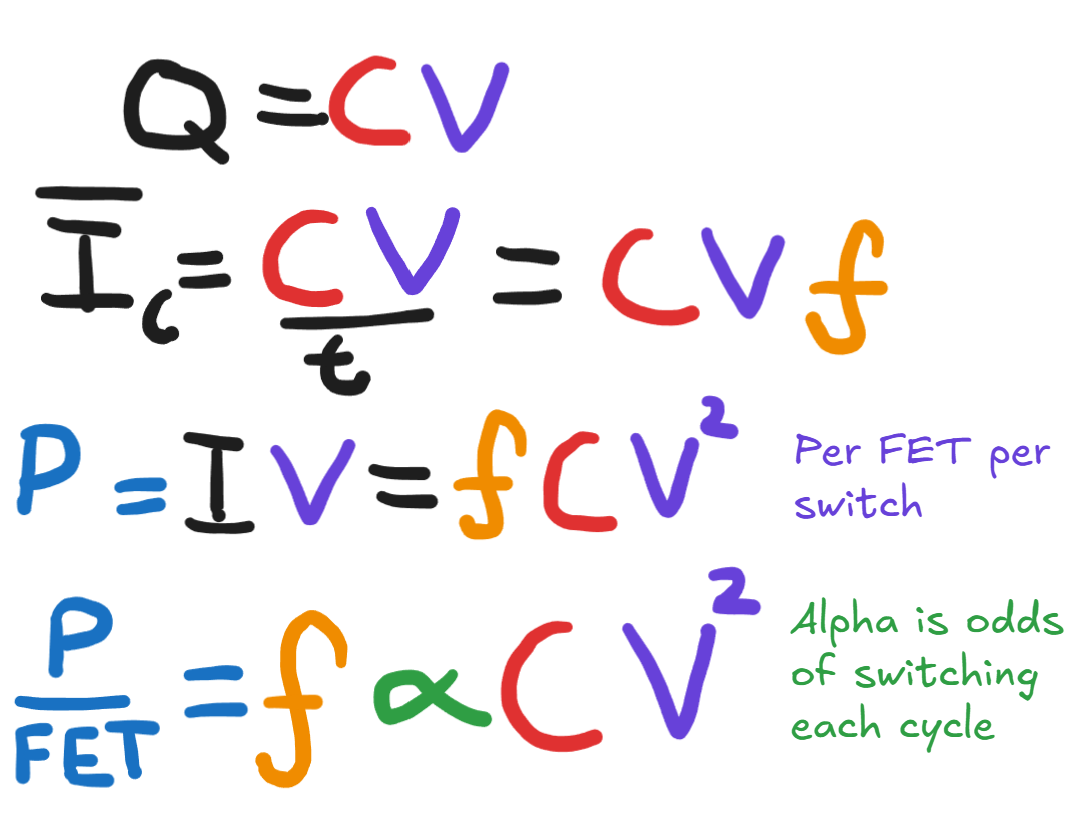 Q = CV
I̅c = CV/t = CVf
P = IV = fCV² Per FET per
switch
P/FET = fαCV² Alpha is odds
of switching
each cycle